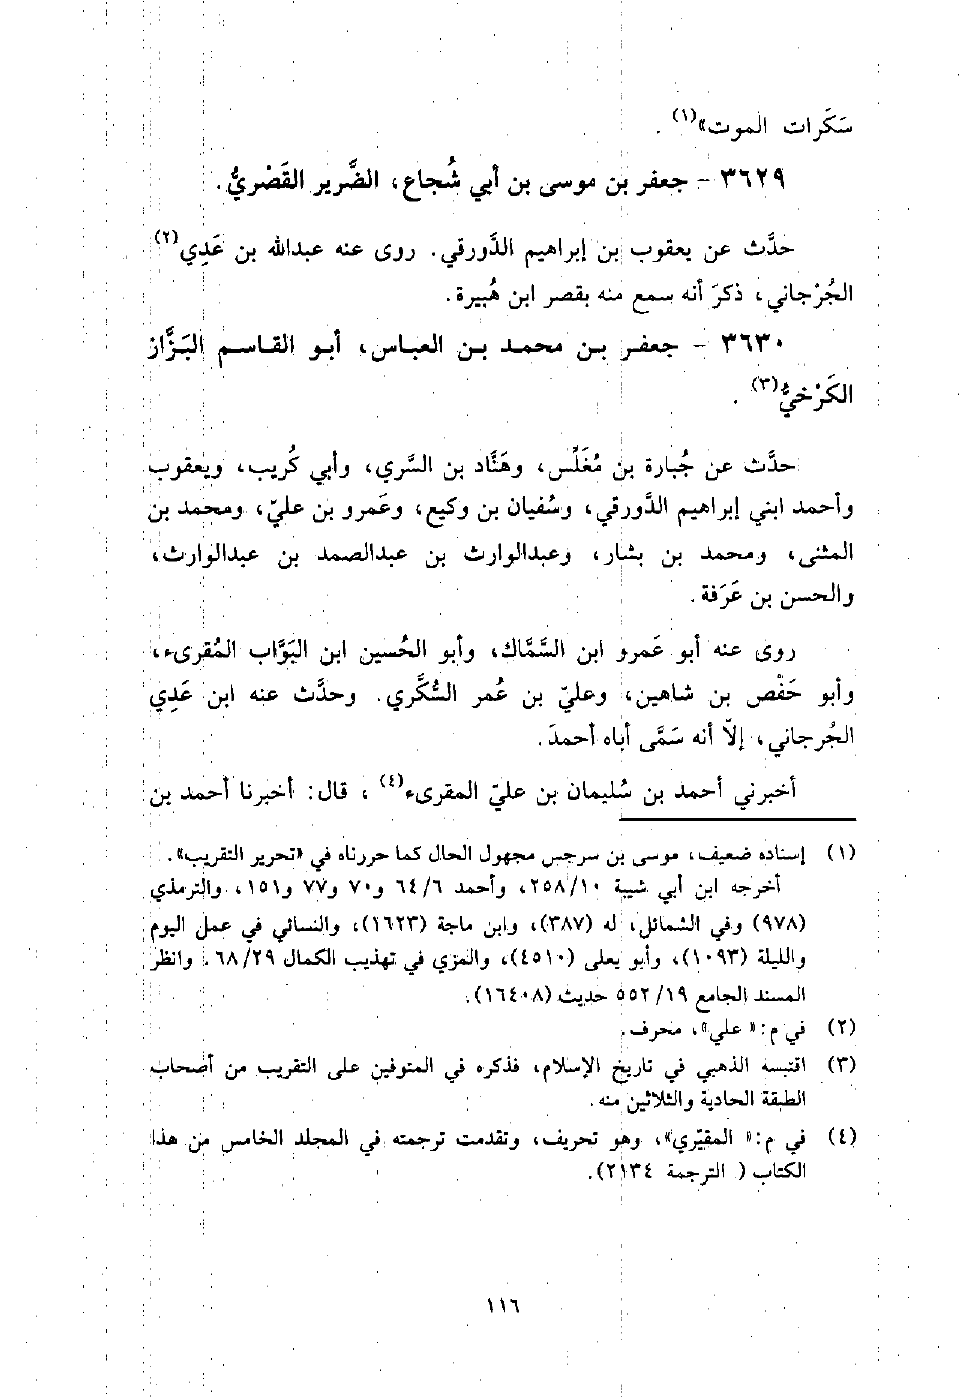 سَكَرات الموت»(١) .
٣٦٢٩ - جعفر بن موسى بن أبي شُجاع، الضَّرير القَصْريُّ.
حدَّث عن يعقوب بن إبراهيم الدَّورقي. روى عنه عبدالله بن عَدِي(٢)
الجُرْجاني، ذكرَ أنه سمع منه بقصر ابن هُبيرة.
٣٦٣٠ - جعفر بن محمد بن العباس، أبو القاسم البَزَّاز
الكَرْخيُّ(٣) .
حدَّث عن جُبارة بن مُغَلِّس، وهَنَّاد بن السَّري، وأبي كُريب، ويعقوب
وأحمد ابني إبراهيم الدَّورقي، وسُفيان بن وكيع، وعَمرو بن عليّ، ومحمد بن
المثنى، ومحمد بن بشار، وعبدالوارث بن عبدالصمد بن عبدالوارث،
والحسن بن عَرَفة.
روى عنه أبو عَمرو ابن السَّمَّاك، وأبو الحُسين ابن البَوَّاب المُقرىء،
وأبو حَفْص بن شاهين، وعليّ بن عُمر السُّكَّري. وحدَّث عنه ابن عَدِي
الجُرجاني، إلاّ أنه سَمَّى أباه أحمدَ.
أخبرني أحمد بن سُليمان بن عليّ المقرىء(٤) ، قال: أخبرنا أحمد بن
(١) إسناده ضعيف، موسى بن سرجس مجهول الحال كما حررناه في «تحرير التقريب».
أخرجه ابن أبي شيبة ١٠/ ٢٥٨، وأحمد ٦/ ٦٤ و٧٠ و٧٧ و١٥١، والترمذي
(٩٧٨) وفي الشمائل، له (٣٨٧)، وابن ماجة (١٦٢٣)، والنسائي في عمل اليوم
والليلة (١٠٩٣)، وأبو يعلى (٤٥١٠)، والمزي في تهذيب الكمال ٢٩/ ٦٨. وانظر
المسند الجامع ١٩/ ٥٥٢ حديث (١٦٤٠٨).
(٢) في م: « علي»، محرف.
(٣) اقتبسه الذهبي في تاريخ الإسلام، فذكره في المتوفين على التقريب من أصحاب
الطبقة الحادية والثلاثين منه.
(٤) في م: « المقيّري»، وهو تحريف، وتقدمت ترجمته في المجلد الخامس من هذا
الكتاب ( الترجمة ٢١٣٤).
١١٦